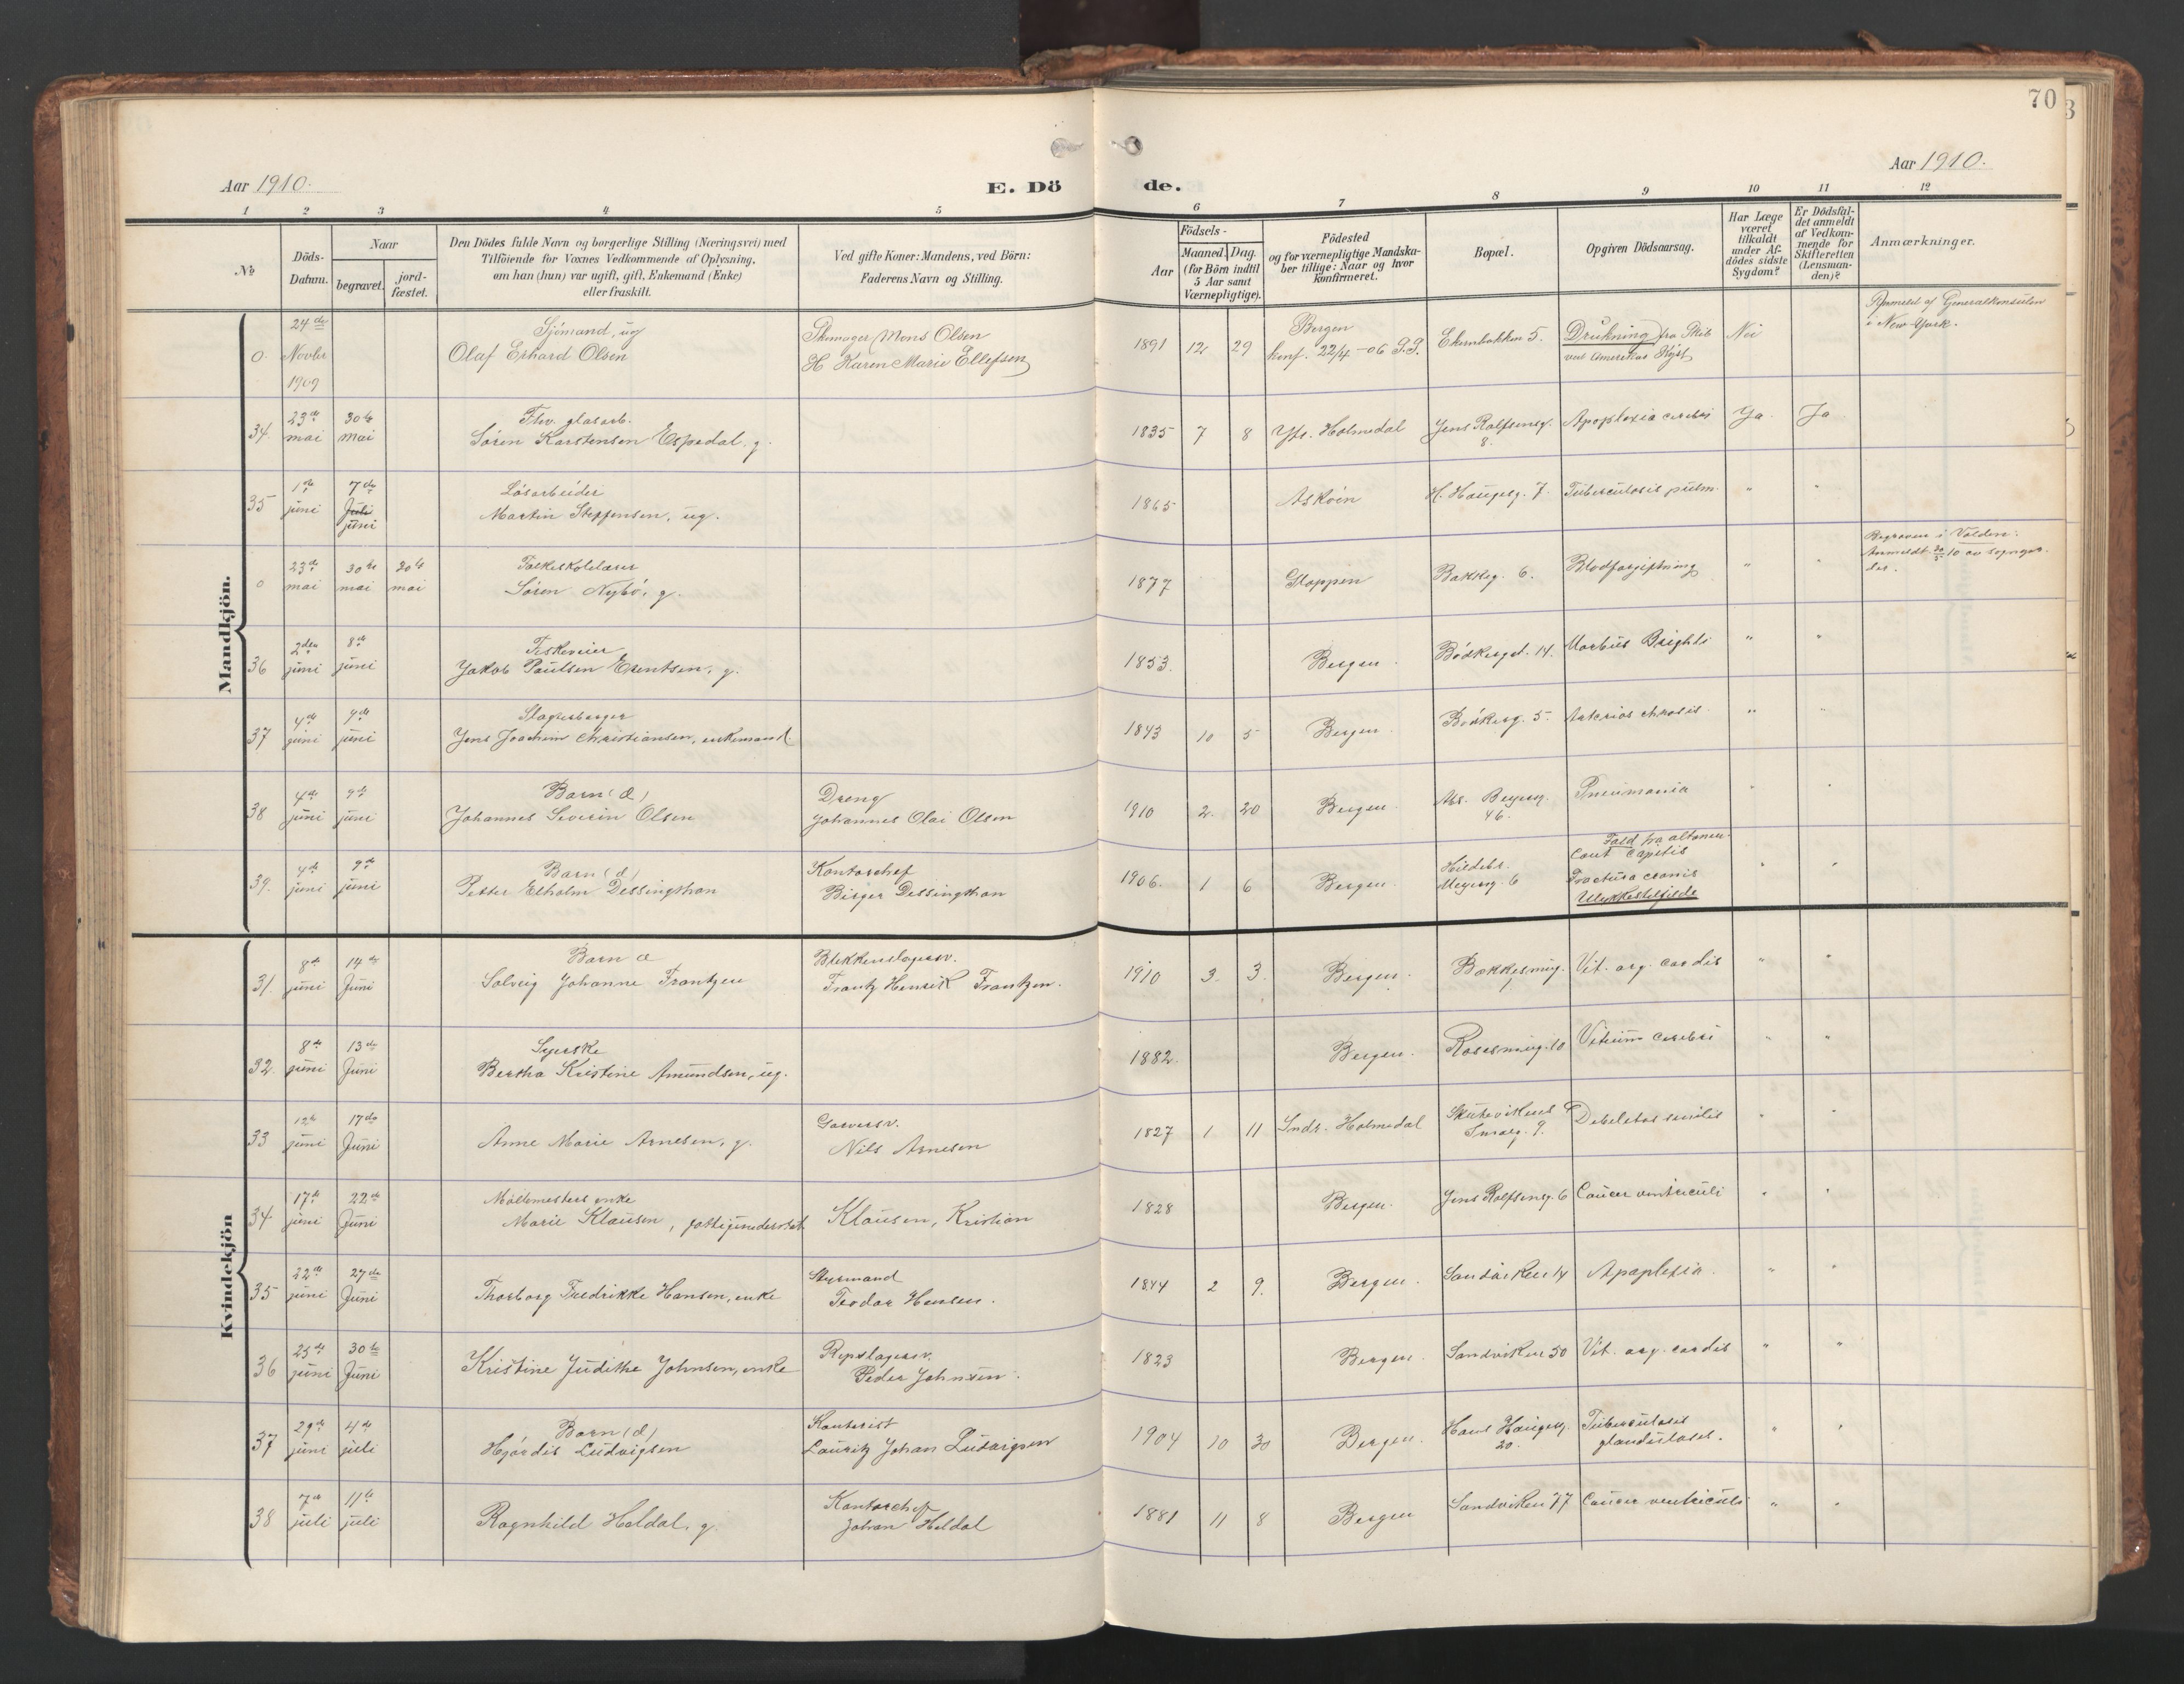 70
Aar 1910.
E. Dö
de.
Aar 1910.
1 2 3 4 5 6 7 8 9 10 11 12
№
Döds-Datum.
Naar
begravet.
jord-fæstet.
Den Dödes fulde Navn og borgerlige Stilling (Næringsvei) med
Tilföiende for Voxnes Vedkommende af Oplysning,
om han (hun) var ugift, gift, Enkemand (Enke)
eller fraskilt.
Ved gifte Koner: Mandens, ved Börn:
Faderens Navn og Stilling.
Födsels-
Aar
Maaned. Dag.
(for Börn indtil
5 Aar samt
Værnepligtige).
Födested
og for værnepligtige Mandska-
ber tillige: Naar og hvor
konfirmeret.
Bopæl.
Opgiven Dödsaarsag.
Har Læge
været
tilkaldt
under Af-
dödes sidste
Sygdom?
Er Dödsfal-
det anmeldt
af Vedkom-
mende for
Skifteretten
(Lensman-
den)?
Anmærkninger.
Mandkjön.
0. 24de Novbr 1909 Sjömand, ug Olaf Erhard Olsen Skomager Mons Olsen H Karen Marie Ellefsen 1891 12 29 Bergen konf. 22/4 -06 Ekernbakken 5. Drukning fra Skib ved Amerikas Kyst Nei Anmeldt af Generalkonsulen i New-York.
34. 23de mai 30te mai Fhv. glasarb. Sören Karstensen Espedal, g. 1835 7 8 Ytr. Holmedal Jens Rolfsensg. 8. Apoplexia cerebri Ja. Ja
35 1ste juni 7de Juli juni Lösarbeider Martin Steffensen, ug. 1865 Asköen H. Haugesg. 7. Tuberculosis pulm. " "
0 23de mai 30te mai 30te mai Folkeskolelærer Sören Nybö, g. 1877 Gloppen Bakkeg. 6. Blodforgiftning " " Begraven i Volden: Anmeldt 30/5 10 av sogneprester.
36 2den juni 8de juni Fiskeveier Jakob Paulsen Erentsen, g. 1853. Bergen Bödkergt. 14. Morbus Brighti " "
37 4de juni 9de juni Slagterborger Jens Joachim Christiansen, enkemand. 1843 10 5 Bergen. Bödkerg. 5. " "
38 4de juni 9de juni Barn (æ) Johannes Severin Olsen Dreng Johannes Olai Olsen 1910 2. 20 Bergen. 46. Pneumonia " "
39. 4de juni 9de juni Barn (d) Petter Elholm Dessingthon Kontorchef Birger Dessingthon 1906. 1 6 Bergen. Hildebr. Meyersg. 6 Fald fra altanen. Cont capitis Fractura cranis Ulykkestilfælde " "
Kvindekjön
31. 8de juni 14de Juni Barn æ Solveig Johanne Frantzen Blikkenslagersv. Frantz Henrik Frantzen. 1910 3. 3. Bergen. Vit. org. cordis " "
32. 8de juni 13de Juni Syerske Bertha Kristine Amundsen, ug. 1882. Bergen. Rosesmug. 10 Vitium cerebri " "
33 12te juni 17de Juni Anne Marie Arnesen, g. Garversv. Nils Arnesen 1827 1 11 Sndr. Holmedal Skutevikens Smalg. 9. Debelitas senilis " "
34. 17de juni 22de Juni Möllemesters enke Marie Klausen, Klausen, Kristian 1828 Bergen. Jens Rolfsensg. 6 Cancer ventriculi " "
35 22de juni 27de Juni Thorborg Fredrikke Hansen, enke Styrmand Teodor Hansen. 1844 2 9. Bergen. Sandviken 14 Apoplexia. " "
36 25de juni 30te Juni Kristine Judithe Johnsen, enke Repslagersv. Peder Johnsen. 1823 Bergen. Sandviken 50 Vit. org. cordis " "
37 29de juni 4de juli Barn (d) Hjördis Ludvigsen Kontorist Lauritz Johan Ludvigsen 1904 10 30 Bergen. Hans Haugesg. 20. Tuberculosis glandulosis. " "
38 7de juli 11te juli Ragnhild Heldal, g. Kontorchef Johan Heldal 1881 11 8 Bergen Sandviken 77 Cancer ventriculi " "